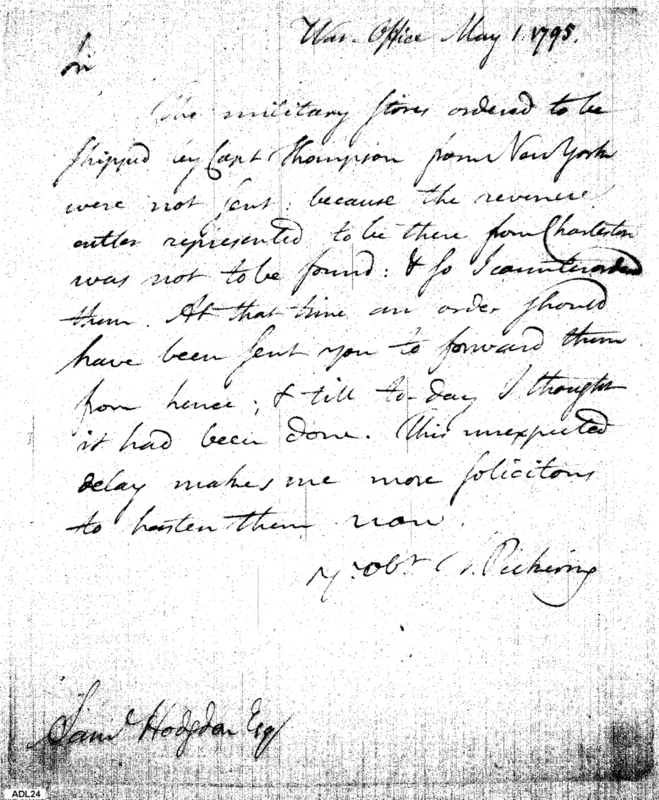 War-Office May 1. 1795.
Sir
The military stores ordered to be
shipped by Capt Thompson from New York
were not sent: because the revenue
cutter represented to be there from Charleston
was not to be found: & so I countermanded
them. At that time an order should
have been sent you to forward them
from hence; & till to-day I thought
it had been done. This unexpected
delay makes me more solicitous
to hasten them now.
Yr. Obt. T. Pickering
Saml Hodgdon Esq
ADL24